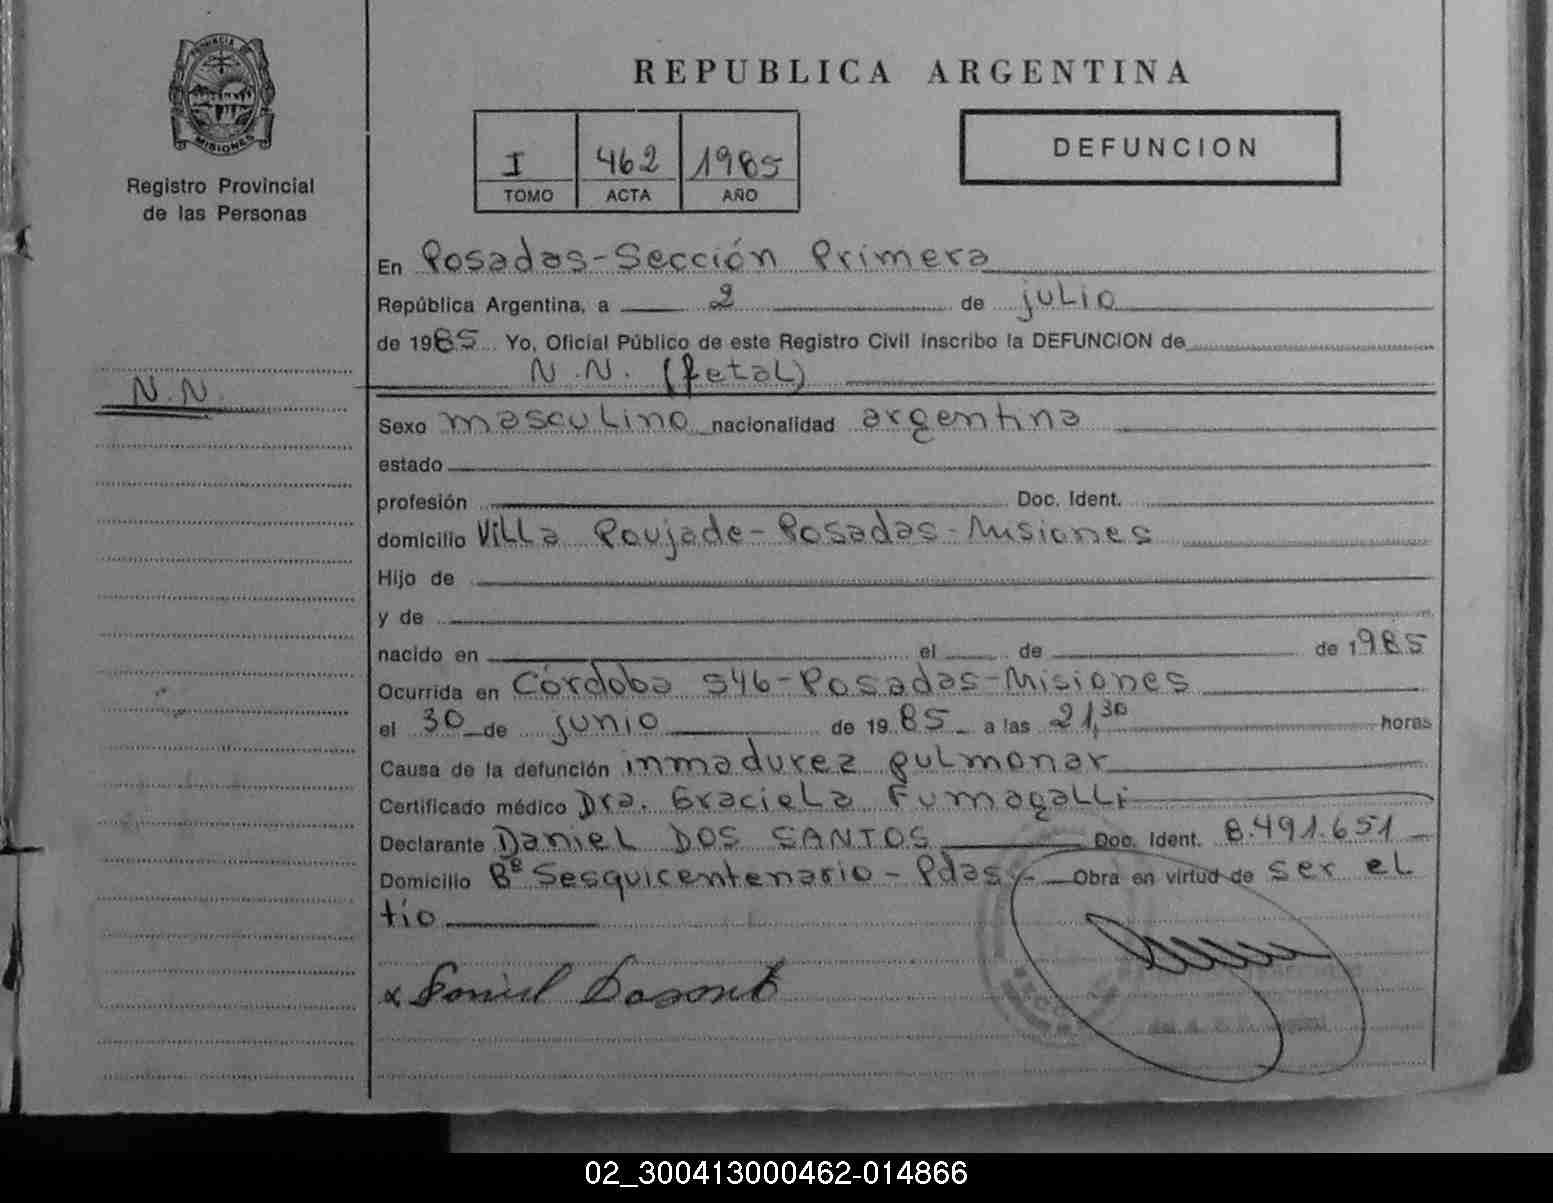 PROVINCIA DE
MISIONES
Registro Provincial
de las Personas
N.N.
REPUBLICA ARGENTINA
I 462 1985
TOMO ACTA AÑO
DEFUNCION
En Posadas-Sección Primera
República Argentina, a 2 de julio
de 1985 Yo, Oficial Público de este Registro Civil inscribo la DEFUNCION de
N.N. (fetal)
Sexo masculino nacionalidad argentina
estado
profesión Doc. Ident.
domicilio Villa Poujade-Posadas-Misiones
Hijo de
y de
nacido en el de de 1985
Ocurrida en Córdoba 546-Posadas-Misiones
el 30 de junio de 1985 a las 21,30 horas
Causa de la defunción inmadurez pulmonar
Certificado médico Dra. Graciela Fumagalli
Declarante Daniel DOS SANTOS Doc. Ident. 8.491.651
Domicilio Bº Sesquicentenario - Pdas- Obra en virtud de ser el
tío
x Daniel
02_300413000462-014866